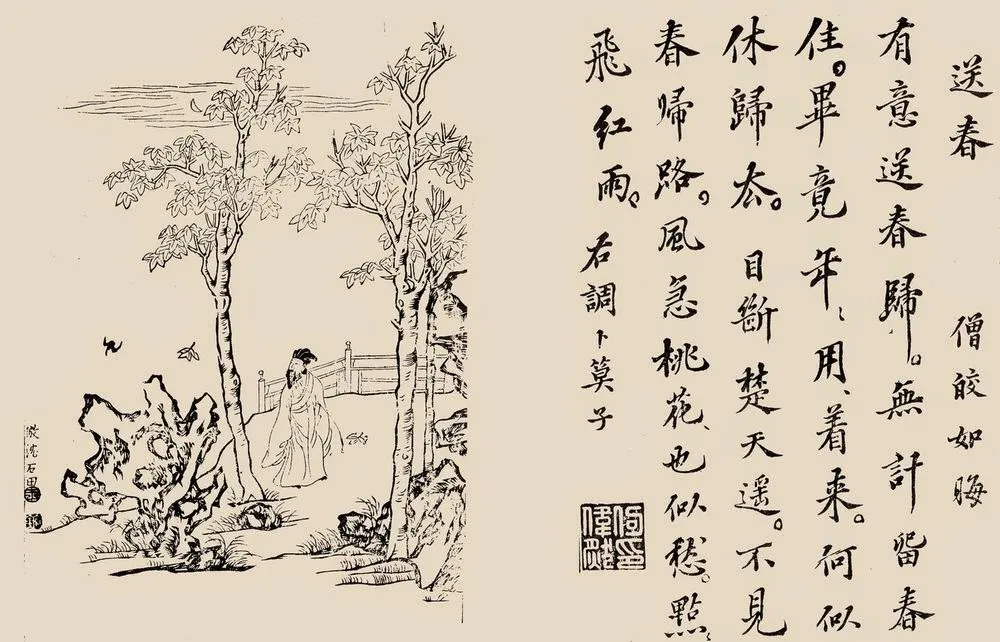 送春 僧皎如晦
有意送春歸。無計畱春
住。畢竟年〻用、着来。何似
休歸厺。目斷楚天遥。不見
春歸路。風急桃花、也似愁。點〻
飛红雨。右調卜算子
倣沈石田